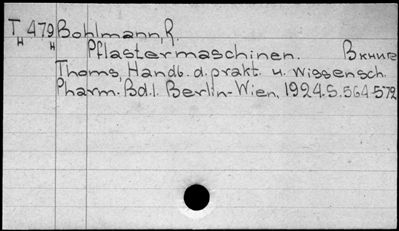 T 479 Bohlmann, R.
н н
Pflastermaschinen. В книге
Thoms, Handb. d. prakt. u. wissensch.
Pharm. Bd. I. Berlin-Wien, 1924. S. 564-572